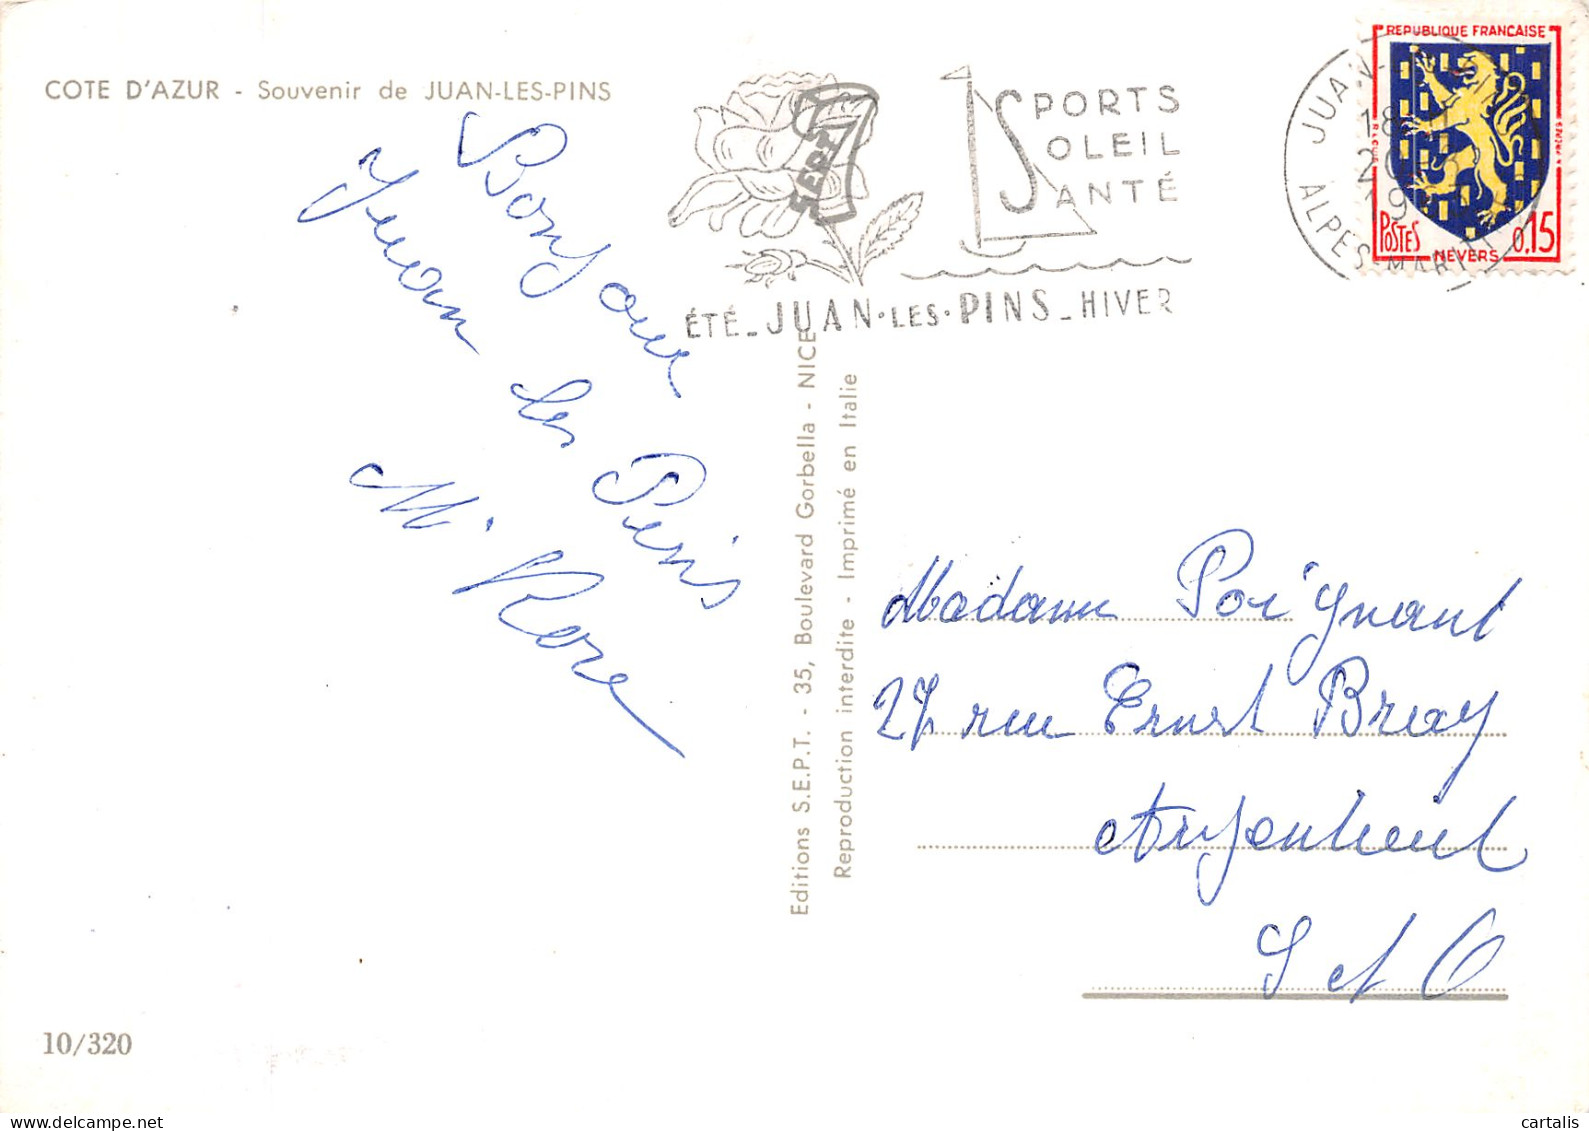 COTE D'AZUR - Souvenir de JUAN-LES-PINS
Bonjour
Juan les Pins
Mr Rore
10/320
Editions S.E.P.T. - 35, Boulevard Gorbella - NICE
Reproduction interdite - Imprimé en Italie
SEPT
SPORTS
SOLEIL
SANTÉ
ÉTÉ_JUAN·LES·PINS_HIVER
JUAN
18
20
19
ALPES-MARIT
REPUBLIQUE FRANCAISE
POSTES
NEVERS
0.15
Madame Poignant
27 rue Ernest Bray
Argenteuil
S et O
cartalis